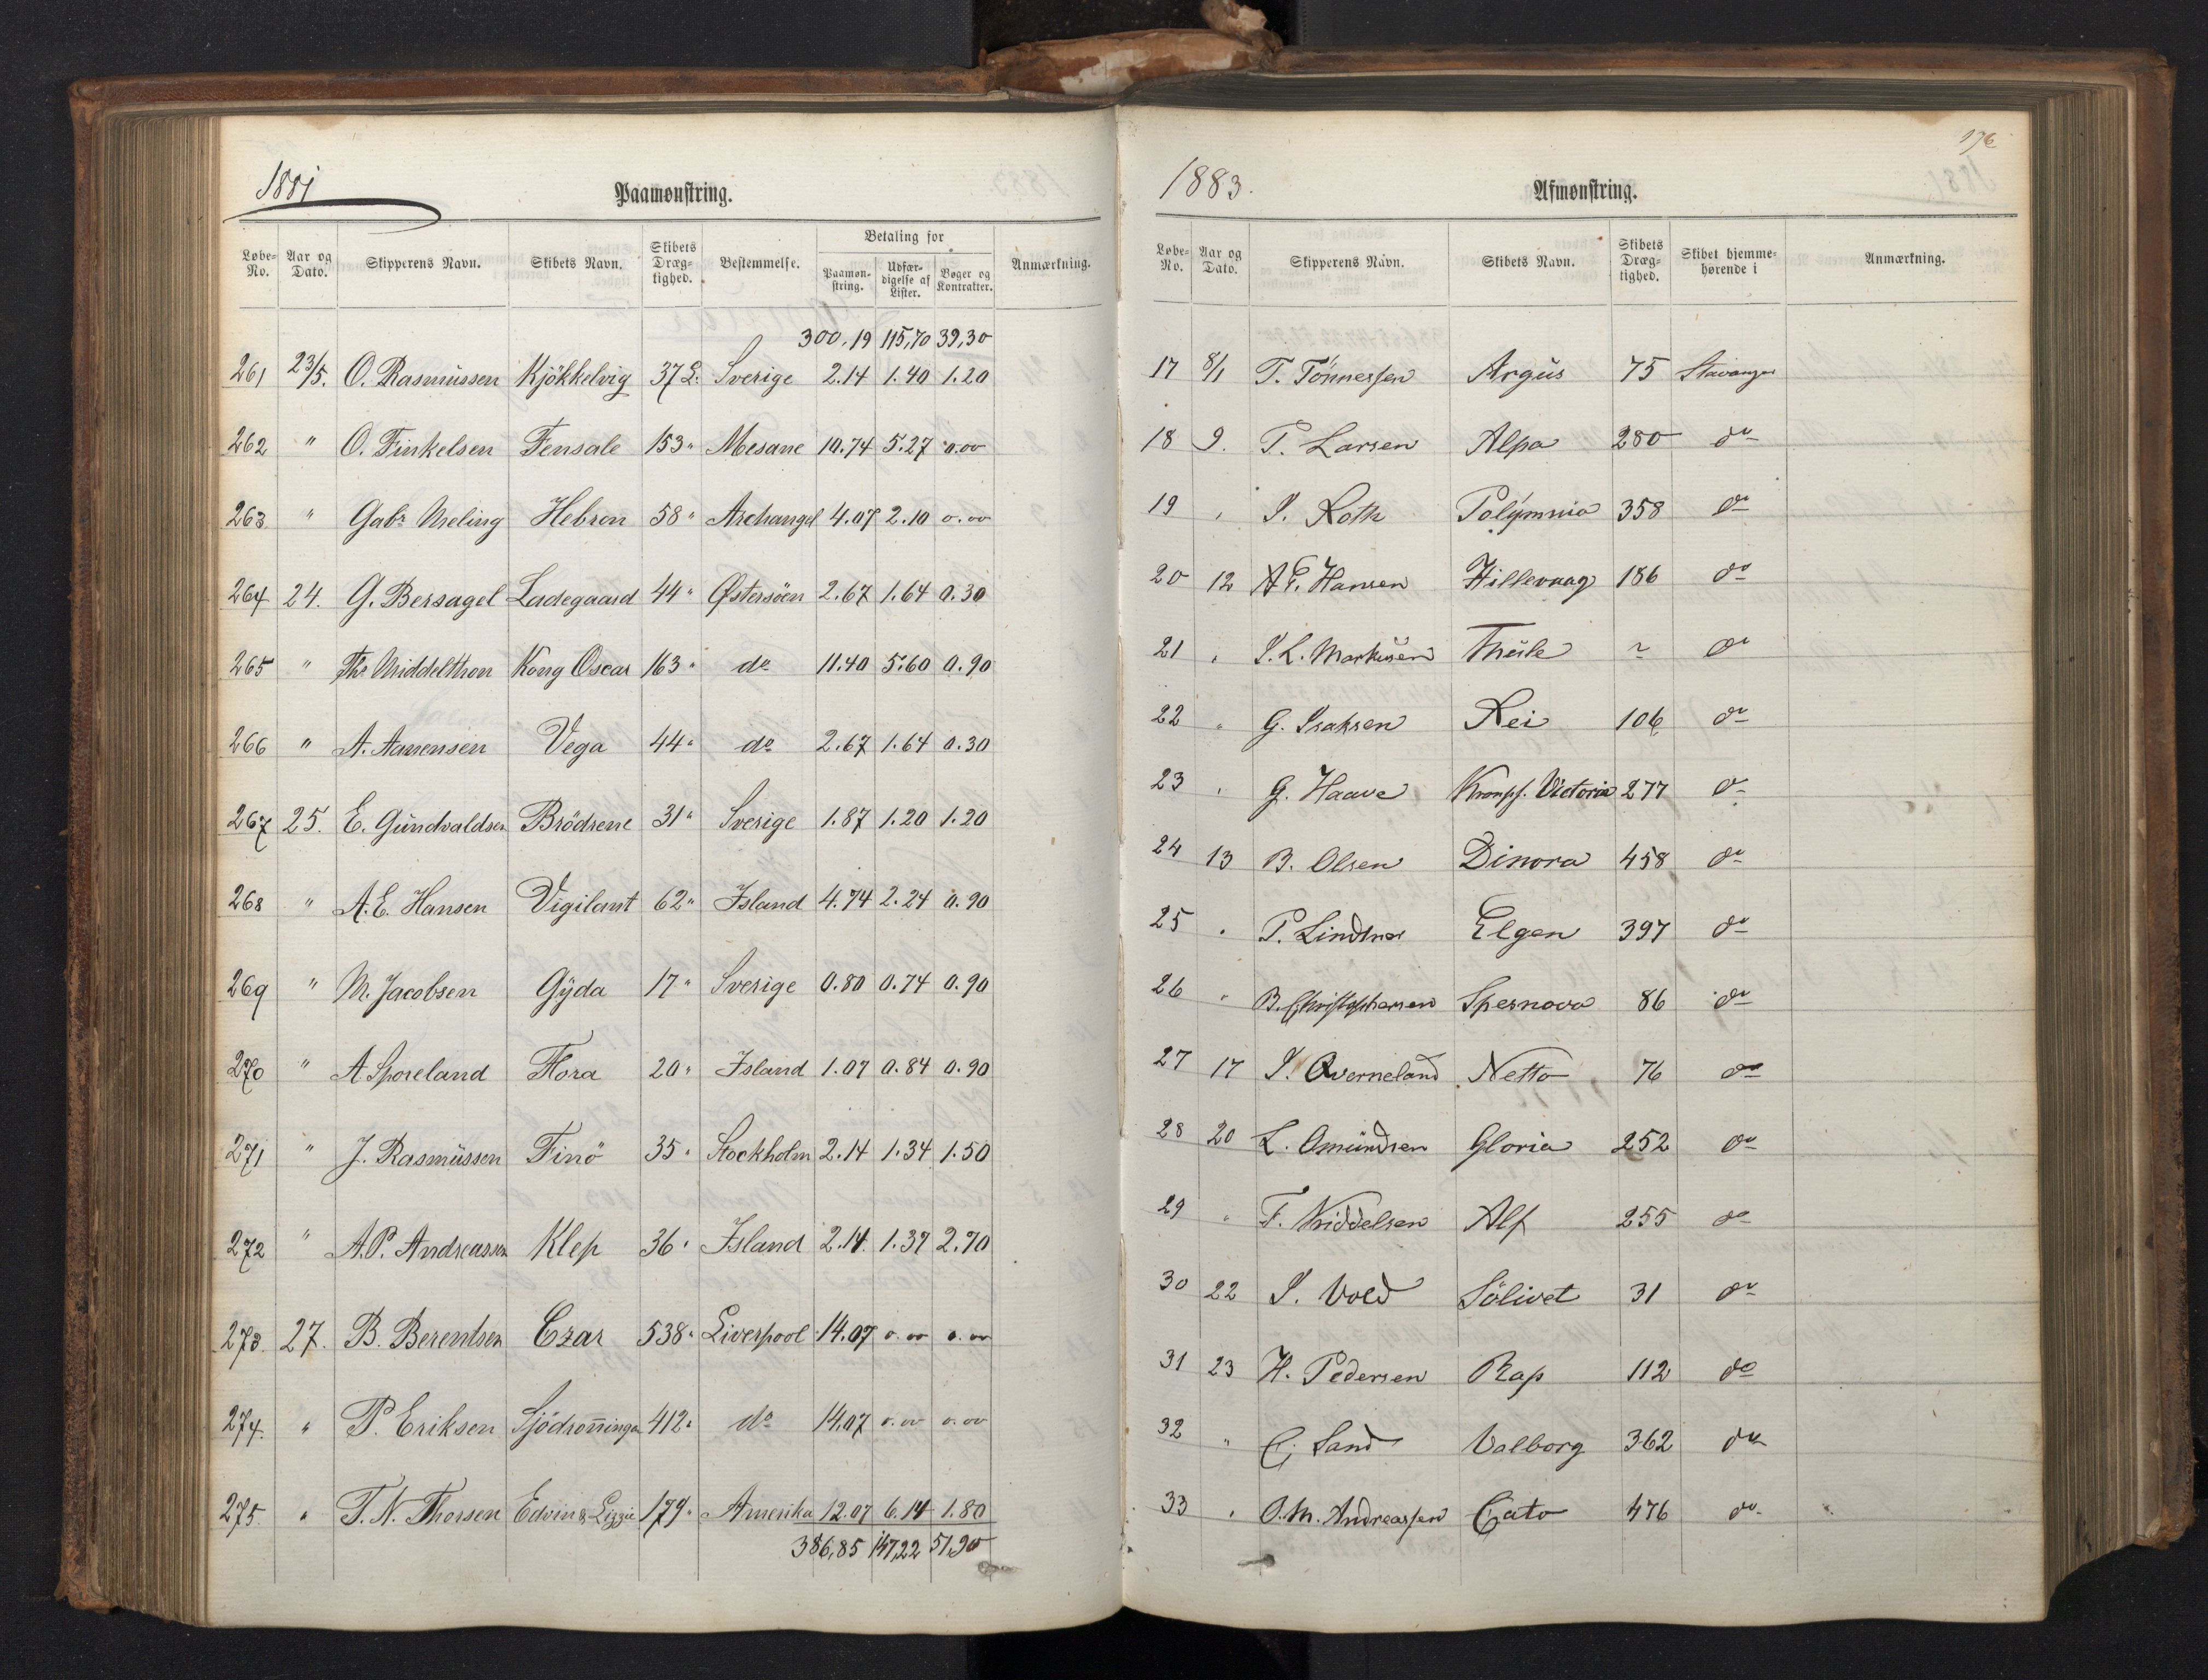 1881
Paamonstring.
Løbe-No. Aar og Dato. Skipperens Navn. Skibets Navn. Skibets Dræg-tighed. Bestemmelse. Betaling for Paamon-string. Udfær-digelse af Lister. Bøger og Kontrakter. Anmærkning.
300,19 115,70 39,30
261 23/5. O. Rasmussen Kjökkelvig 37 L: Sverige 2.14 1.40 1.20
262 " O. Finkelsen Fensale 153 " Mesane 10.74 5.27 0.00
263 " Gabr. Meling Hebron 58 " Archangel 4.07 2.10 0.00
264 24. G. Bersagel Ladegaard 44 " Østersöen 2.67 1.64 0.30
265 " Ths Middelthon Kong Oscar 163 " do 11.40 5.60 0.90
266 " A. Aanensen Vega 44 " do 2.67 1.64 0.30
267 25. E. Gundvaldsen Brödrene 31 " Sverige 1.87 1.20 1.20
268 " A. E. Hansen Vigilant 62 " Island 4.74 2.24 0.90
269 " M. Jacobsen Gyda 17 " Sverige 0.80 0.74 0.90
270 " A. Sporeland Flora 20 " Island 1.07 0.84 0.90
271 " J. Rasmussen Finö 35 " Stockholm 2.14 1.34 1.50
272 " A. P. Andreassen Klep 36 " Island 2.14 1.37 2.70
273. 27. B. Berentsen Czar 538 " Liverpool 14.07 0.00 0.00
274. " P. Eriksen Sjödronningen 412 " do 14.07 0.00 0.00
275. " T. N. Thorsen Edvin & Lizzie 179 " Amerika 12.07 6.14 1.80
386,85 147,22 51,90
176
1883.
Afmonstring.
Løbe-No. Aar og Dato. Skipperens Navn. Skibets Navn. Skibets Dræg-tighed. Skibet hjemme-hørende i Anmærkning.
17 8/1 T. Tönnessen Argus 75 Stavanger
18 9. T. Larsen Alpa 280 do
19 " I. Roth Polymnia 358 do
20 12 A E. Hansen Hillevaag 186 do
21 " I. L. Markussen Thule " do
22 " G. Isaksen Rei 106 do
23 " G. Haave Kronps. Victoria 277 do
24 13 B. Olsen Dinora 458 do
25 " P. Lindtner Elgen 397 do
26 " B. Christophersen Spesnova 86 do
27 17 I. Qverneland Netto 76 do
28 20 L. Omundsen Gloria 252 do
29 " F. Alf 255 do
30 22 I. Vold Sölivet 31 do
31 23 H. Pedersen Rap 112 do
32 " C. Sand Valborg 362 do
33 " O. M. Andreassen Cato 476 do